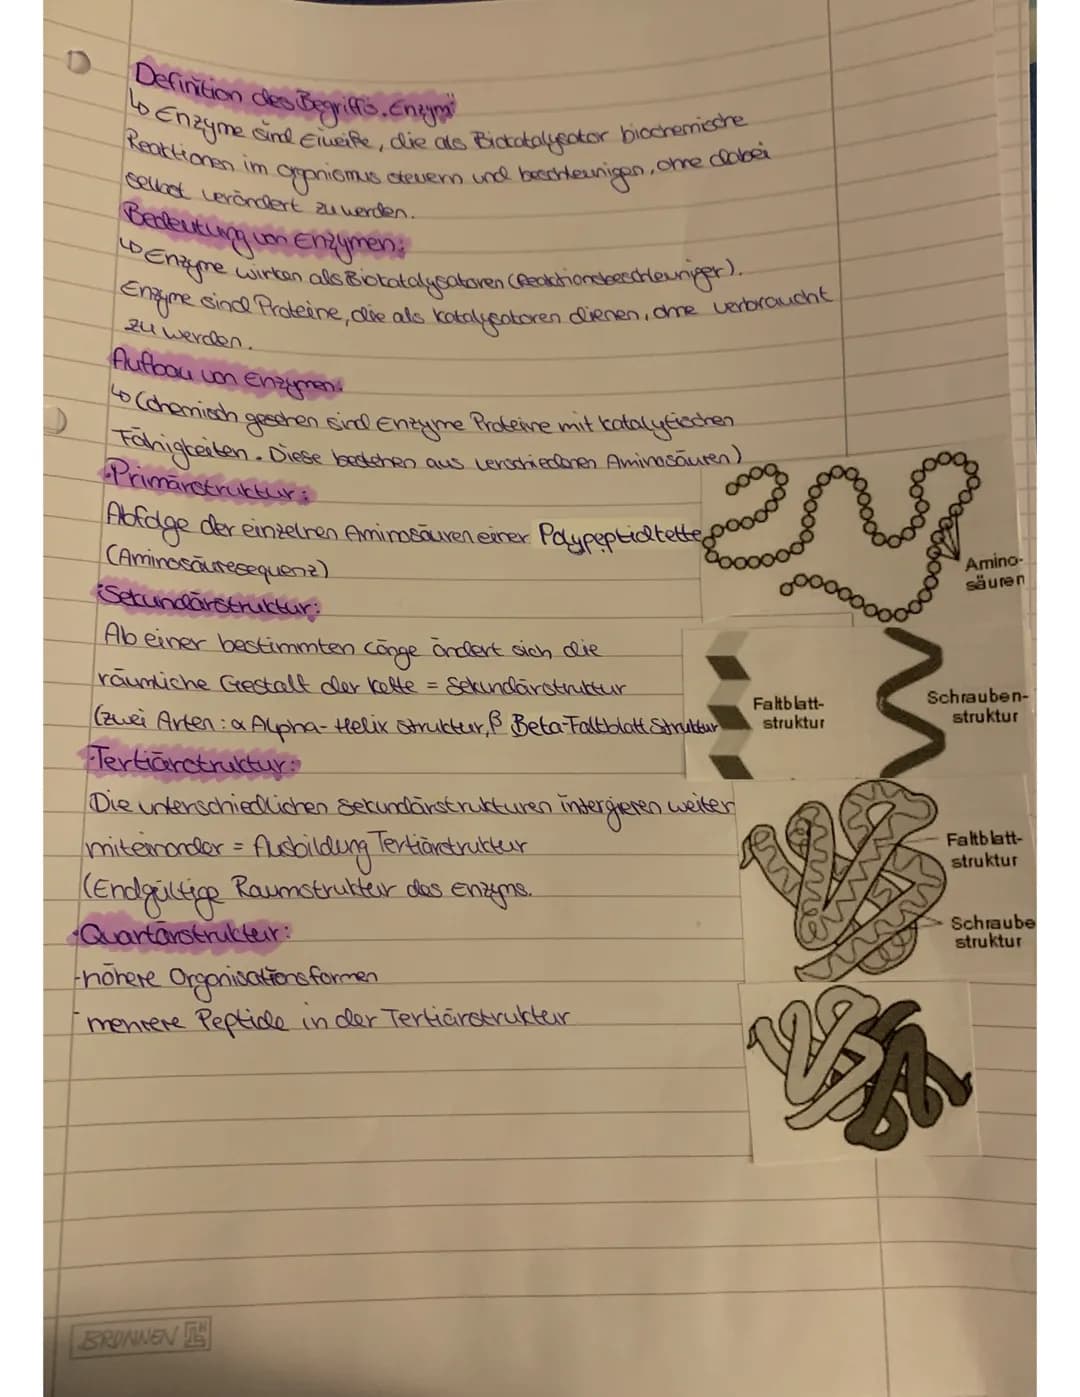 Definition des Begriffs „Enzym"
↳ Enzyme sind Eiweiße, die als Biokatalysator biochemische
Reaktionen im organismus steuern und beschleunigen, ohne dabei
selbst verändert zu werden.
Bedeutung von Enzymen:
↳ Enzyme wirken als Biokatalysatoren (Reaktionsbeschleuniger).
Enzyme sind Proteine, die als Katalysatoren dienen, ohne verbraucht
zu werden.
Aufbau von Enzymen:
↳ (chemisch gesehen sind Enzyme Proteine mit katalytischen
Fähigkeiten. Diese bestehen aus verschiedenen Aminosäuren)
·Primärstruktur:
Abfolge der einzelnen Aminosäuren einer Polypeptidkette
(Aminosäuresequenz)
Amino-
säuren
·Sekundärstruktur:
Ab einer bestimmten Länge ändert sich die
räumliche Gestalt der Kette = Sekundärstruktur
(zwei Arten: α Alpha-Helix Struktur, β Beta-Faltblatt Struktur
Faltblatt-
struktur
Schrauben-
struktur
·Tertiärstruktur:
Die unterschiedlichen Sekundärstrukturen intergieren weiter
miteinander = Ausbildung Tertiärstruktur
(Endgültige Raumstruktur des Enzyms.
Faltblatt-
struktur
Schraube
struktur
·Quartärstruktur:
-höhere Organisationsformen
-mehrere Peptide in der Tertiärstruktur
BRUNNEN